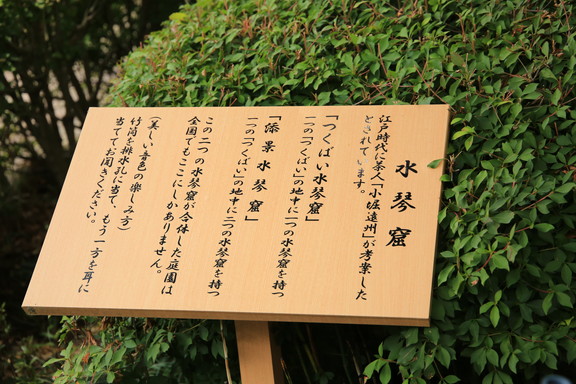 水琴窟
江戸時代に茶人「小堀遠州」が考案した
とされています。
「つくばい水琴窟」
一つの「つくばい」の地中に一つの水琴窟を持つ
「添景水琴窟」
一つの「つくばい」の地中に二つの水琴窟を持つ
この二つの水琴窟が合体した庭園は
全国でもここにしかありません。
(美しい音色の楽しみ方)
竹筒を排水孔に当て、もう一方を耳に
当ててお聞きください。